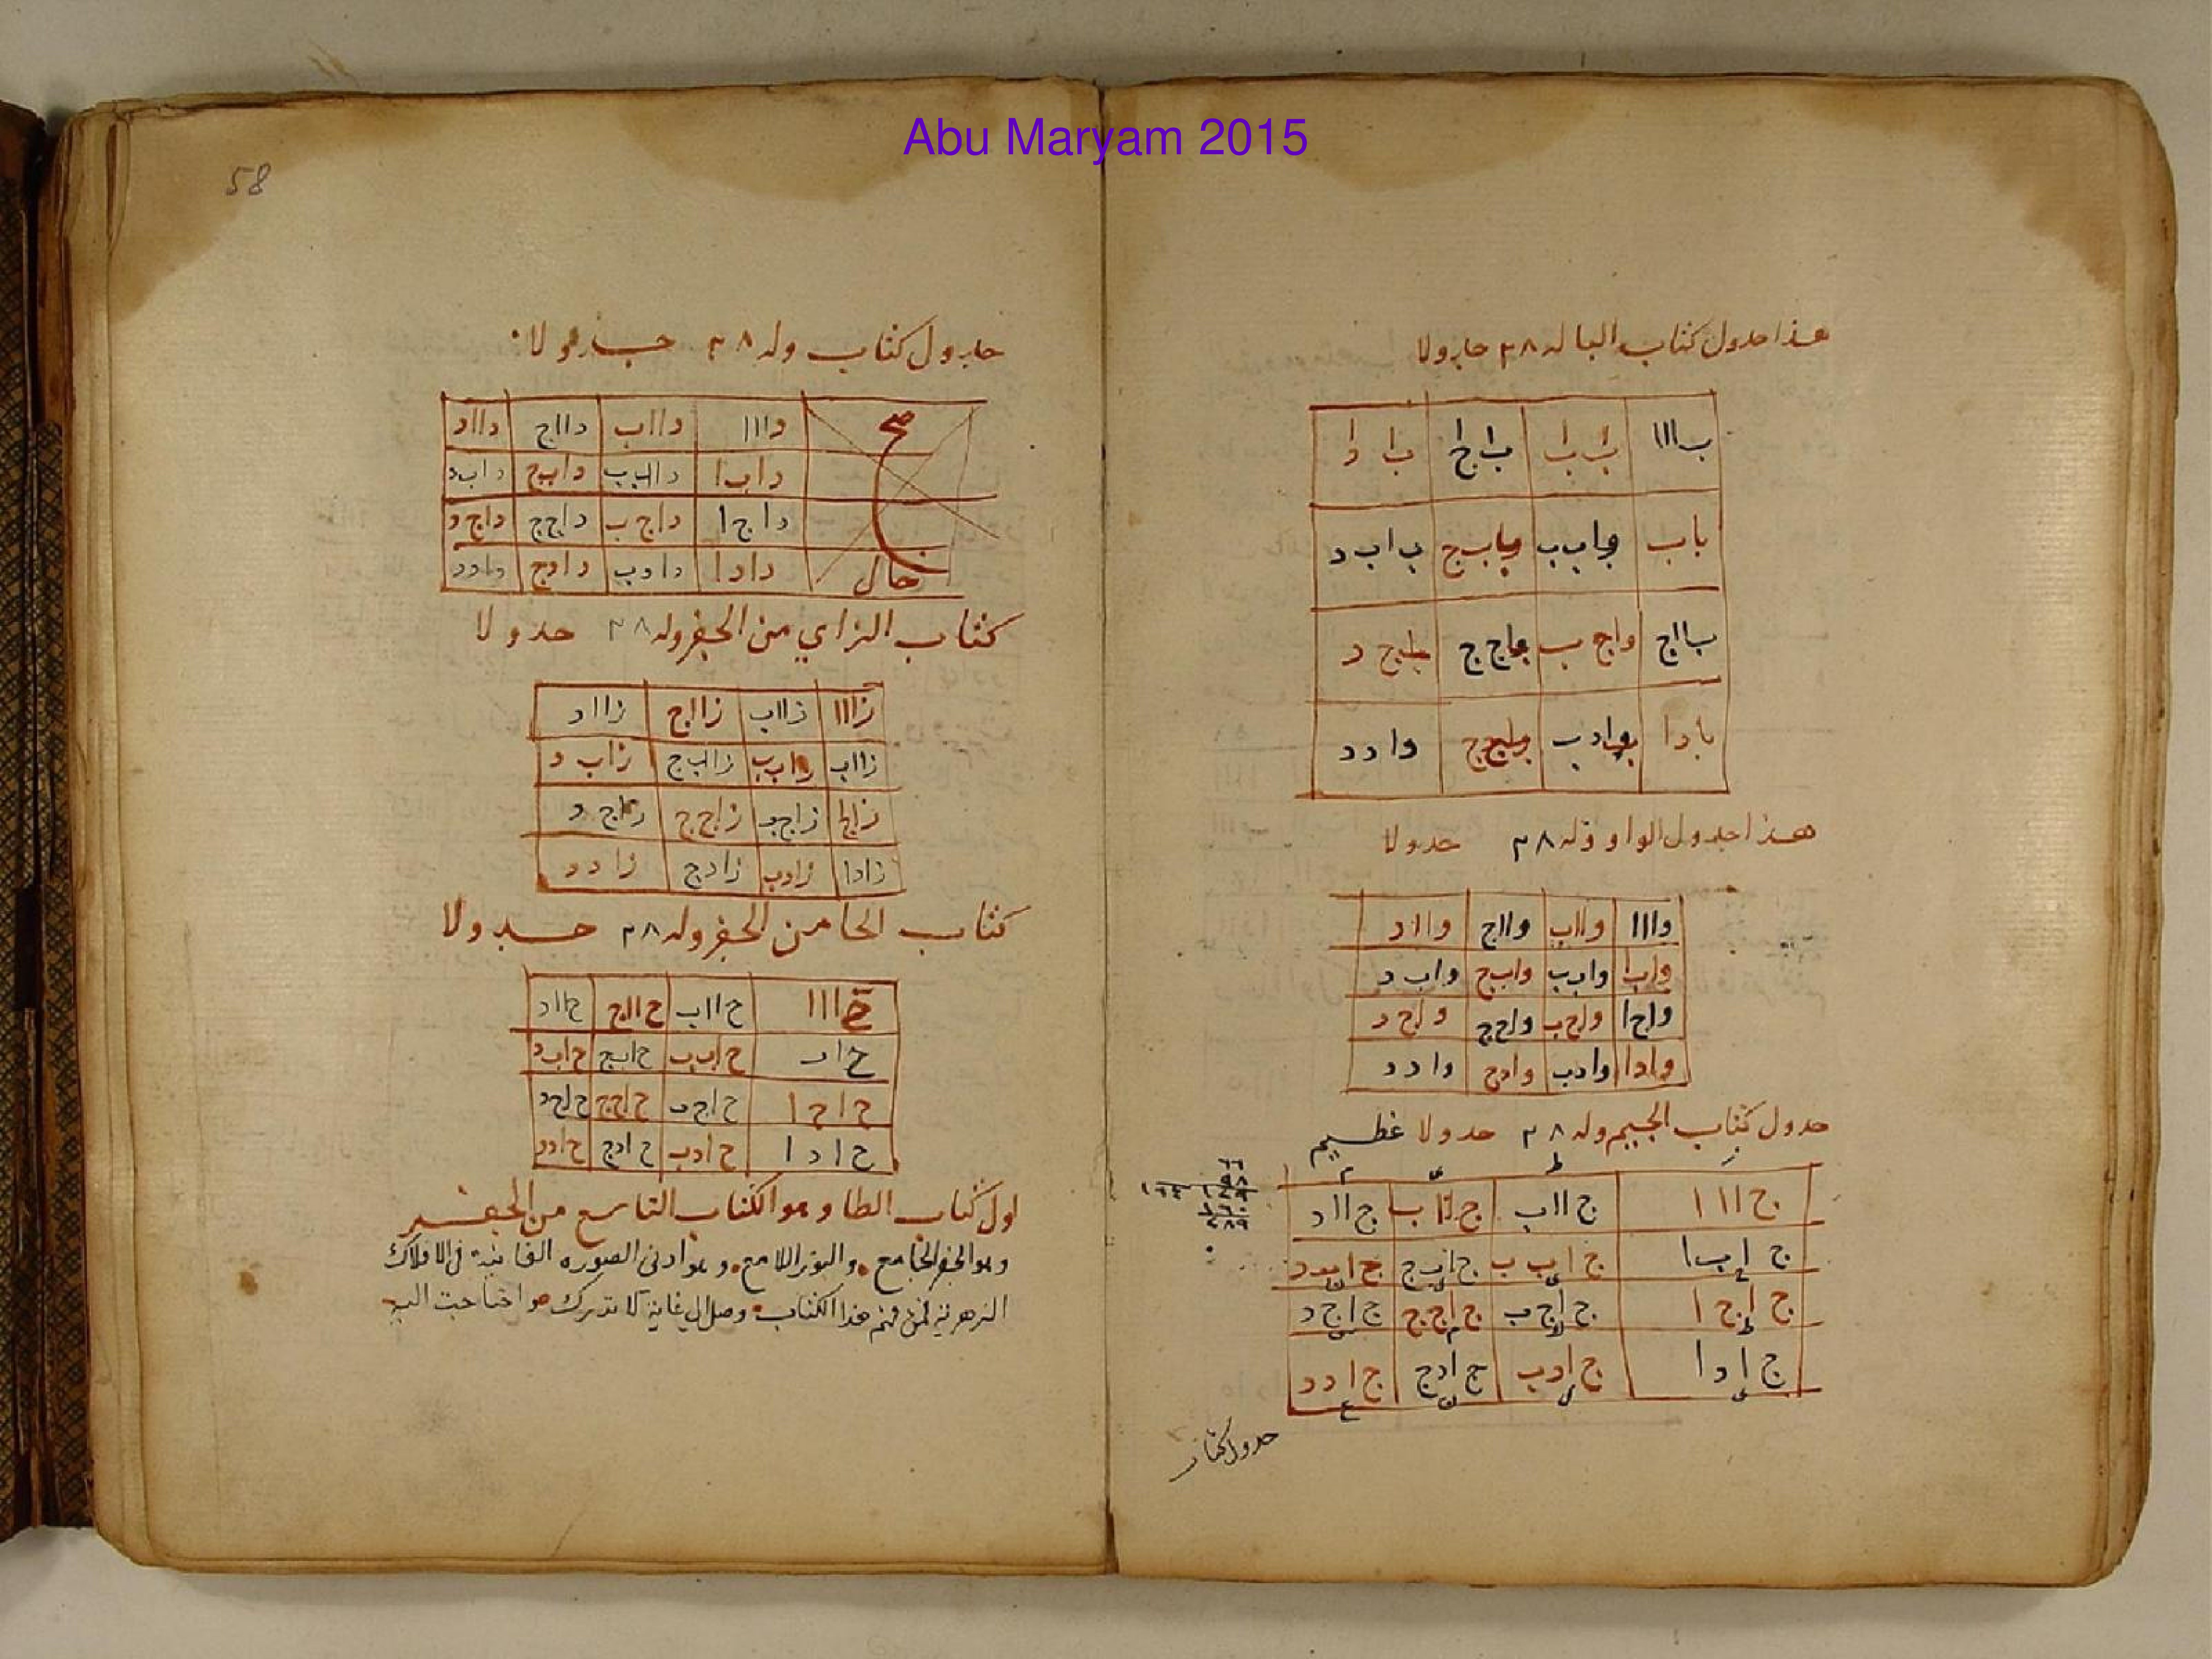 Abu Maryam 2015
هذا جدول كتاب البا له ٢٨ جدولا
با ا ا | ب ا ب ا | ب ا ج ا | ب ا د ا
باب | باب ب | باب ج | ب ا ب د
ب ا ا ج | واج ب | باج ج | باج د
با د ا | بواد ب | ج ج | وا د د
هذا جدول الواو وله ٢٨ جدولا
واا ا | وااب | وااج | وااد
واب ا | واب ب | واب ج | واب د
واج ا | واج ب | واج ج | واج د
واد ا | واد ب | واد ج | وا د د
جدول كتاب الجيم وله ٢٨ جدولا عظيم
ج ا ا ا | ج اا ب | ج اا ب | ج اا د
ج ا ب ا | ج ا ب ب | ج ا ب ج | ج ا ب د
ج ا ج ا | ج ا ج ب | ج ا ج ج | ج ا ج د
ج ا د ا | ج ا د ب | ج ا د ج | ج ا د د
جدول كتاب
58
جدول كتاب وله ٢٨ جدولا
صح
داا ا | دااب | دااج | دااد
داب ا | داب ب | داب ج | داب د
داج ا | داج ب | داج ج | داج د
خال
داد ا | داد ب | داد ج | داد د
كتاب الزاي من الجفر وله ٢٨ جدولا
زاا ا | زااب | زااج | زااد
زااب | زاب ب | زااب ج | زاب د
زاج ا | زاج ب | زاج ج | زاج د
زاد ا | زاد ب | زاد ج | زا د د
كتاب الحا من الجفر وله ٢٨ جدولا
ح ا ا ا | ح اا ب | ح اا ج | ح اا د
ح ا ب | ح ا ب ب | ح ا ب ج | ح ا ب د
ح ا ج ا | ح ا ج ب | ح ا ج ج | ح ا ج د
ح ا د ا | ح ا د ب | ح ا د ج | ح ا د د
اول كتاب الطا وهو الكتاب التاسع من الجفر
وهو الجفر الجامع والنور اللامع وهو ادنى الصوره في الافلاك
الزهرية فمن فهم هذا الكتاب وصل الى غاية لا تدرك